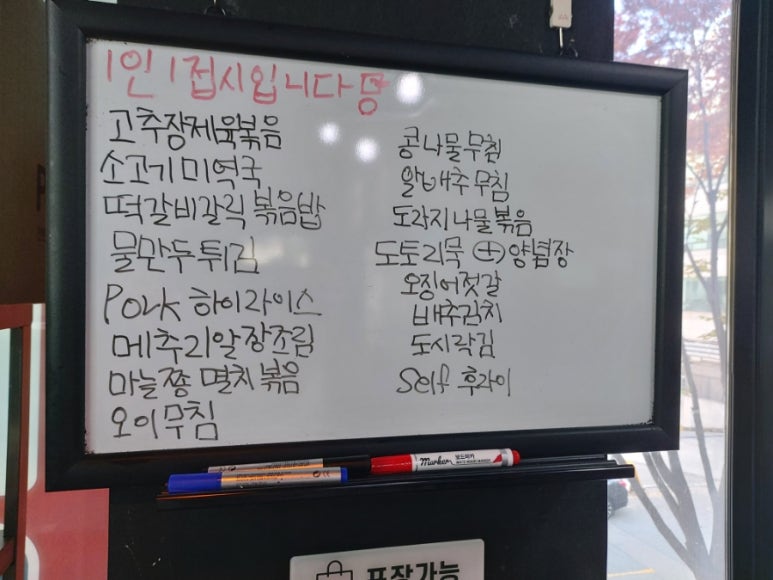 1인 1접시입니다 뿅
고추장제육볶음
소고기미역국
떡갈비갈릭볶음밥
물만두튀김
Pork 하이라이스
메추리알장조림
마늘쫑 멸치볶음
오이무침
콩나물무침
알배추무침
도라지나물볶음
도토리묵 ⊕ 양념장
오징어젓갈
배추김치
도시락김
Self 후라이
marker 보드마카
포장가능